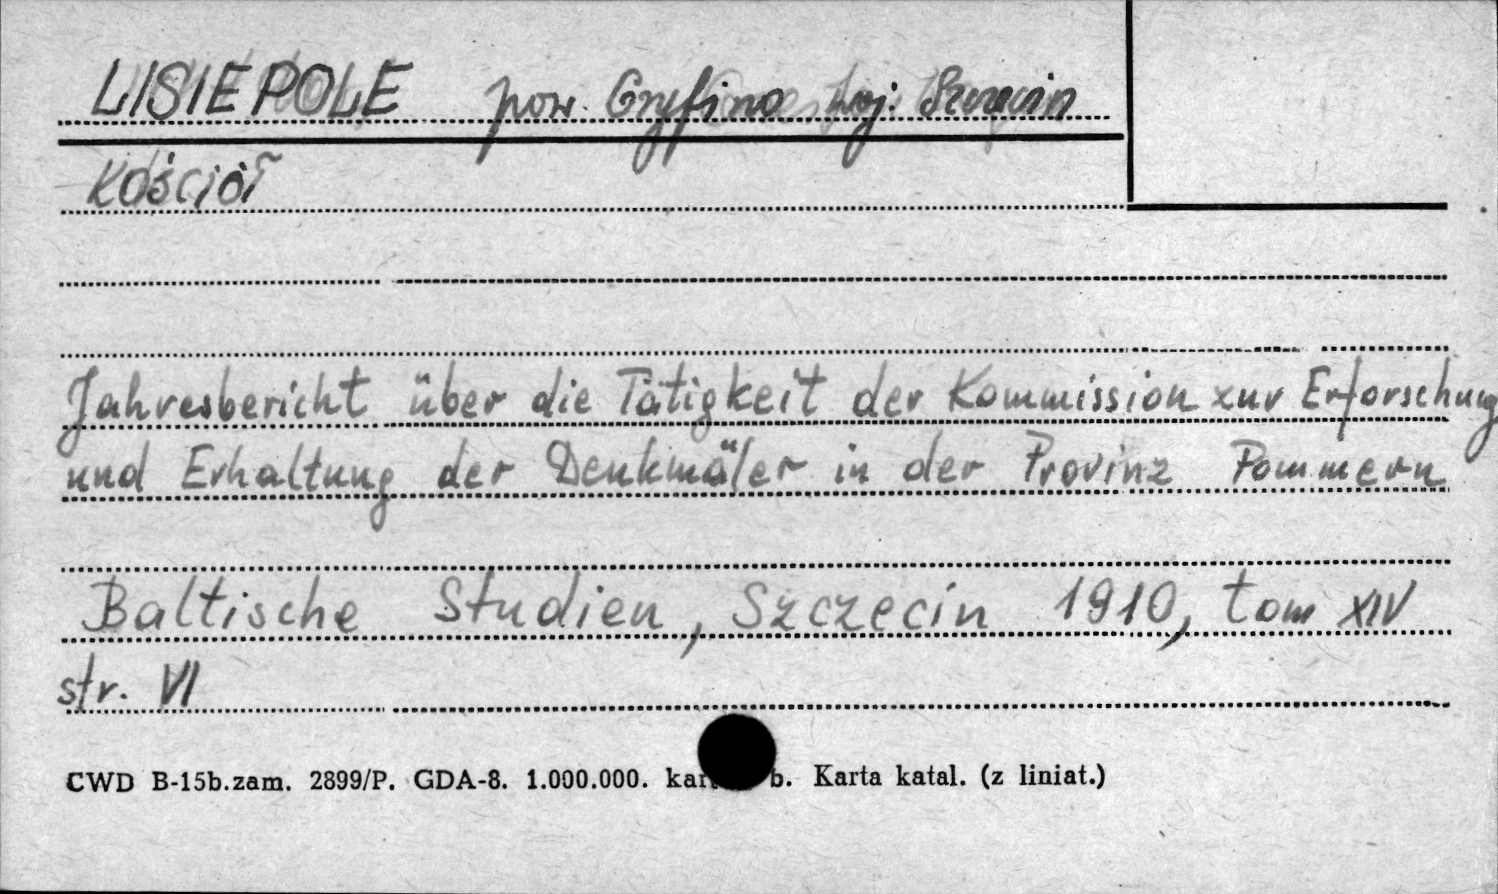 LISIE POLE pow. Gryfino woj. Szczecin
Kościół
Jahresbericht über die Tätigkeit der Kommission zur Erforschung
und Erhaltung der Denkmäler in der Provinz Pommern
Baltische Studien, Szczecin 1910, tom XIV
str. VI
CWD B-15b.zam. 2899/P. GDA-8. 1.000.000. b. Karta katal. (z liniat.)